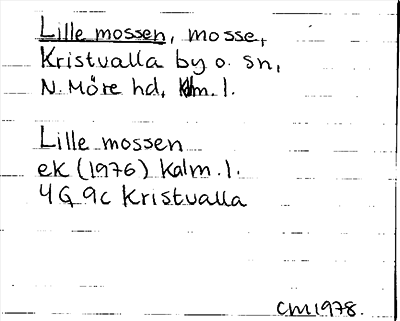 Lille mossen, mosse,
Kristvalla by o. sn,
N. Möre hd, Klm. l.
Lille mossen
ek (1976) Kalm. l.
4G 9c Kristvalla
CM 1978.